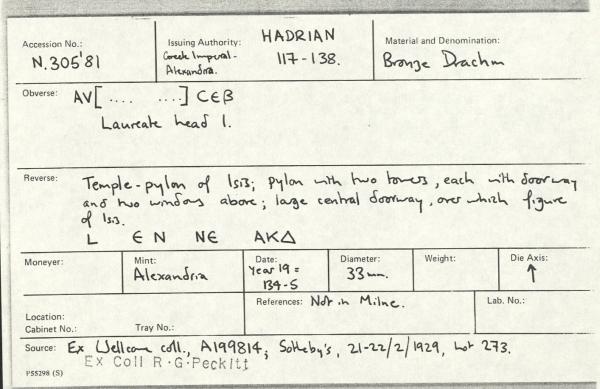 Accession No.: N.305'81
Issuing Authority: HADRIAN
Greek Imperial - Alexandria. 117-138.
Material and Denomination: Bronze Drachm
Obverse: AV[.... ....] CЄB
Laureate head l.
Reverse: Temple-pylon of Isis; pylon with two towers, each with doorway
and two windows above; large central doorway, over which figure
of Isis.
L ЄN NЄ AKΔ
Moneyer:
Mint: Alexandria
Date: Year 19 = 134-5
Diameter: 33mm.
Weight:
Die Axis: ↑
Location:
Cabinet No.: Tray No.:
References: Not in Milne.
Lab. No.:
Source: Ex Wellcome coll., A199814; Sotheby's, 21-22/2/1929, Lot 273.
Ex Coll R·G·Peckitt
P55298 (S)